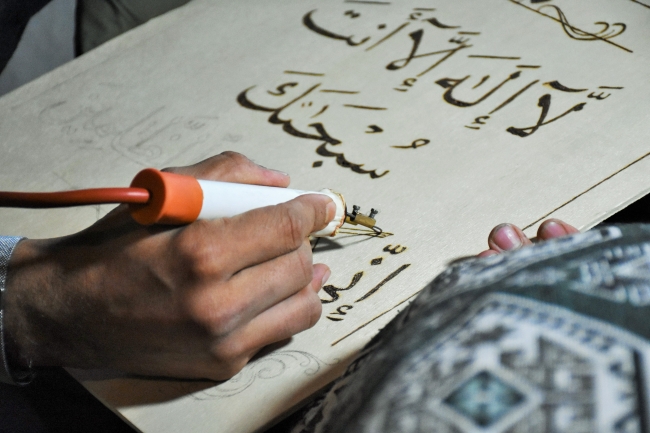 لَّآ إِلَٰهَ إِلَّآ أَنتَ
سُبْحَٰنَكَ
إِنِّى